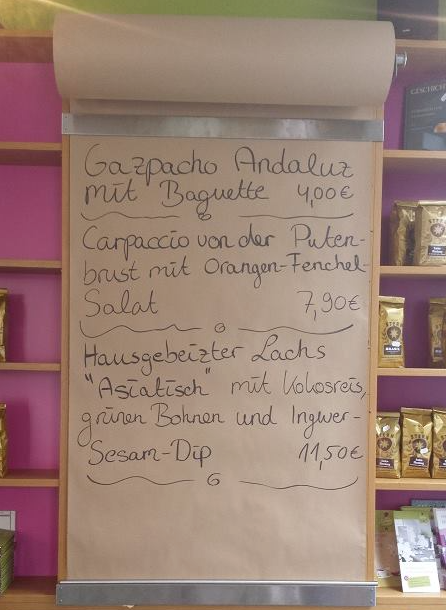 Gazpacho Andaluz
mit Baguette 4,00€
Carpaccio von der Puten-
brust mit Orangen-Fenchel-
Salat 7,90€
Hausgebeizter Lachs
"Asiatisch" mit Kokosreis,
grünen Bohnen und Ingwer-
Sesam-Dip 11,50€
GESCHICHT